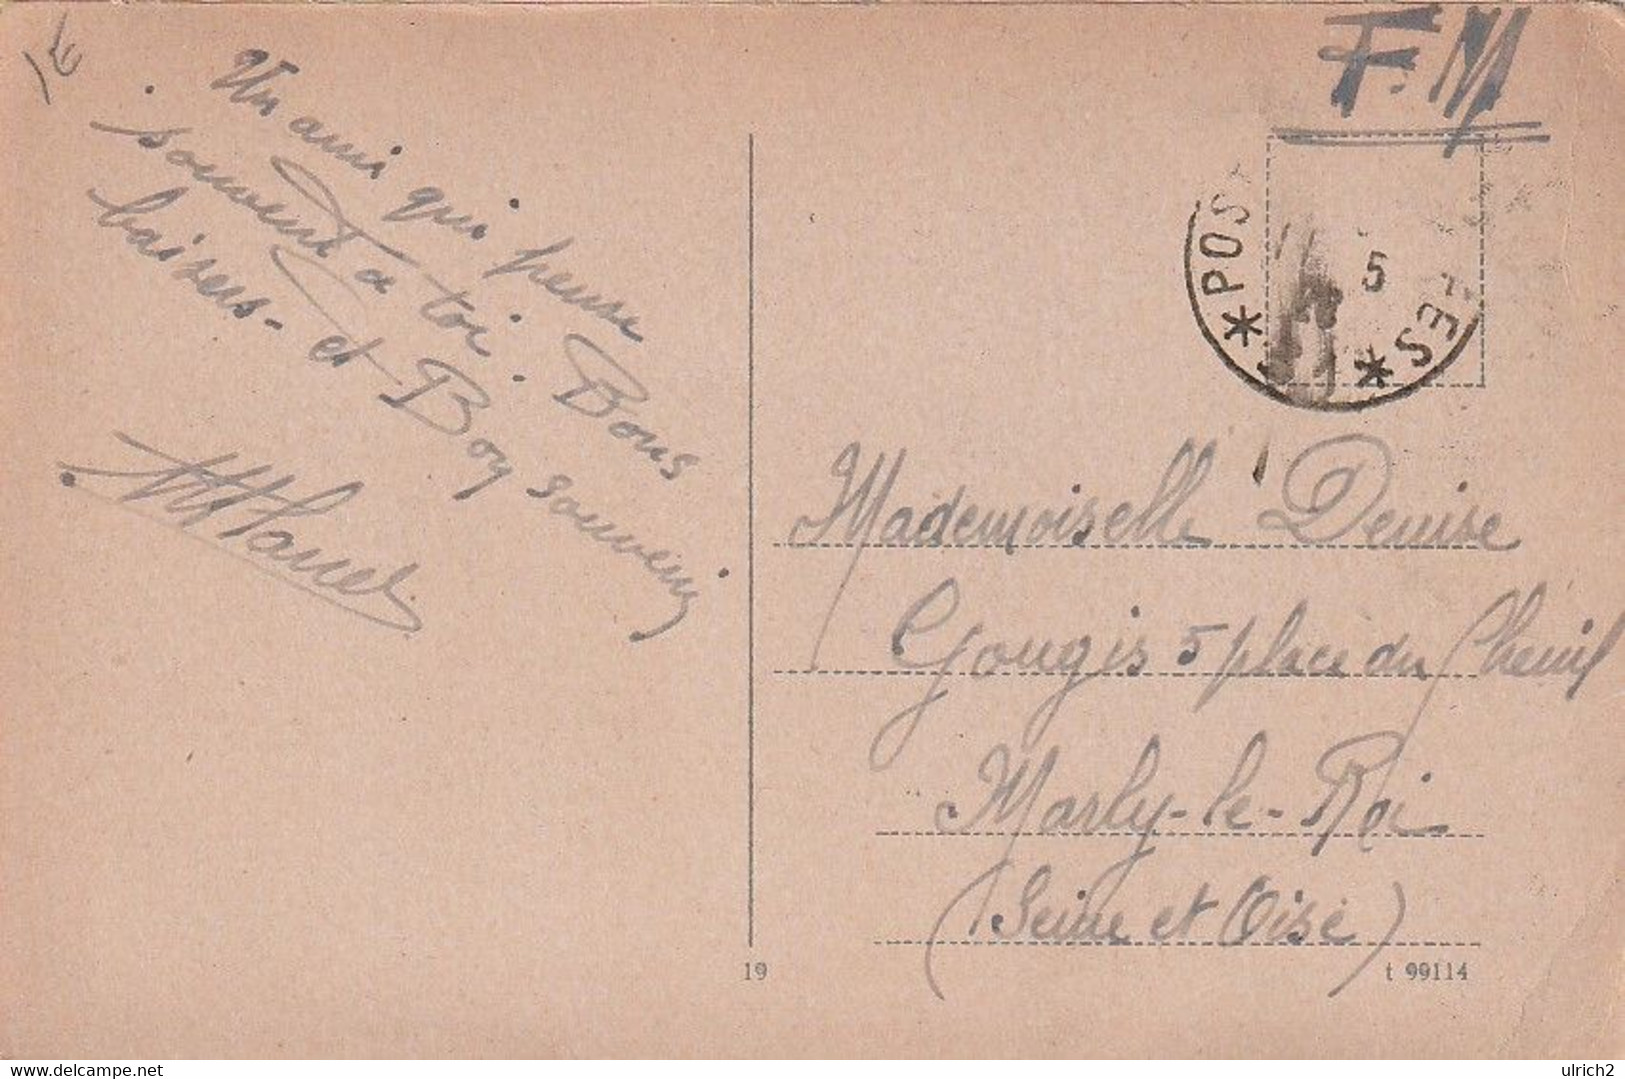 1€
Un ami qui pense
souvent a toi. Bons
baisers - et Boy souvenir
F.M
*POS ES*
5
Mademoiselle Denise
Gougis 5 place du Chenil
Marly-le-Roi
(Seine et Oise)
19
t 99114
delcampe.net
ulrich2